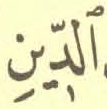 ٱلدِّينِ